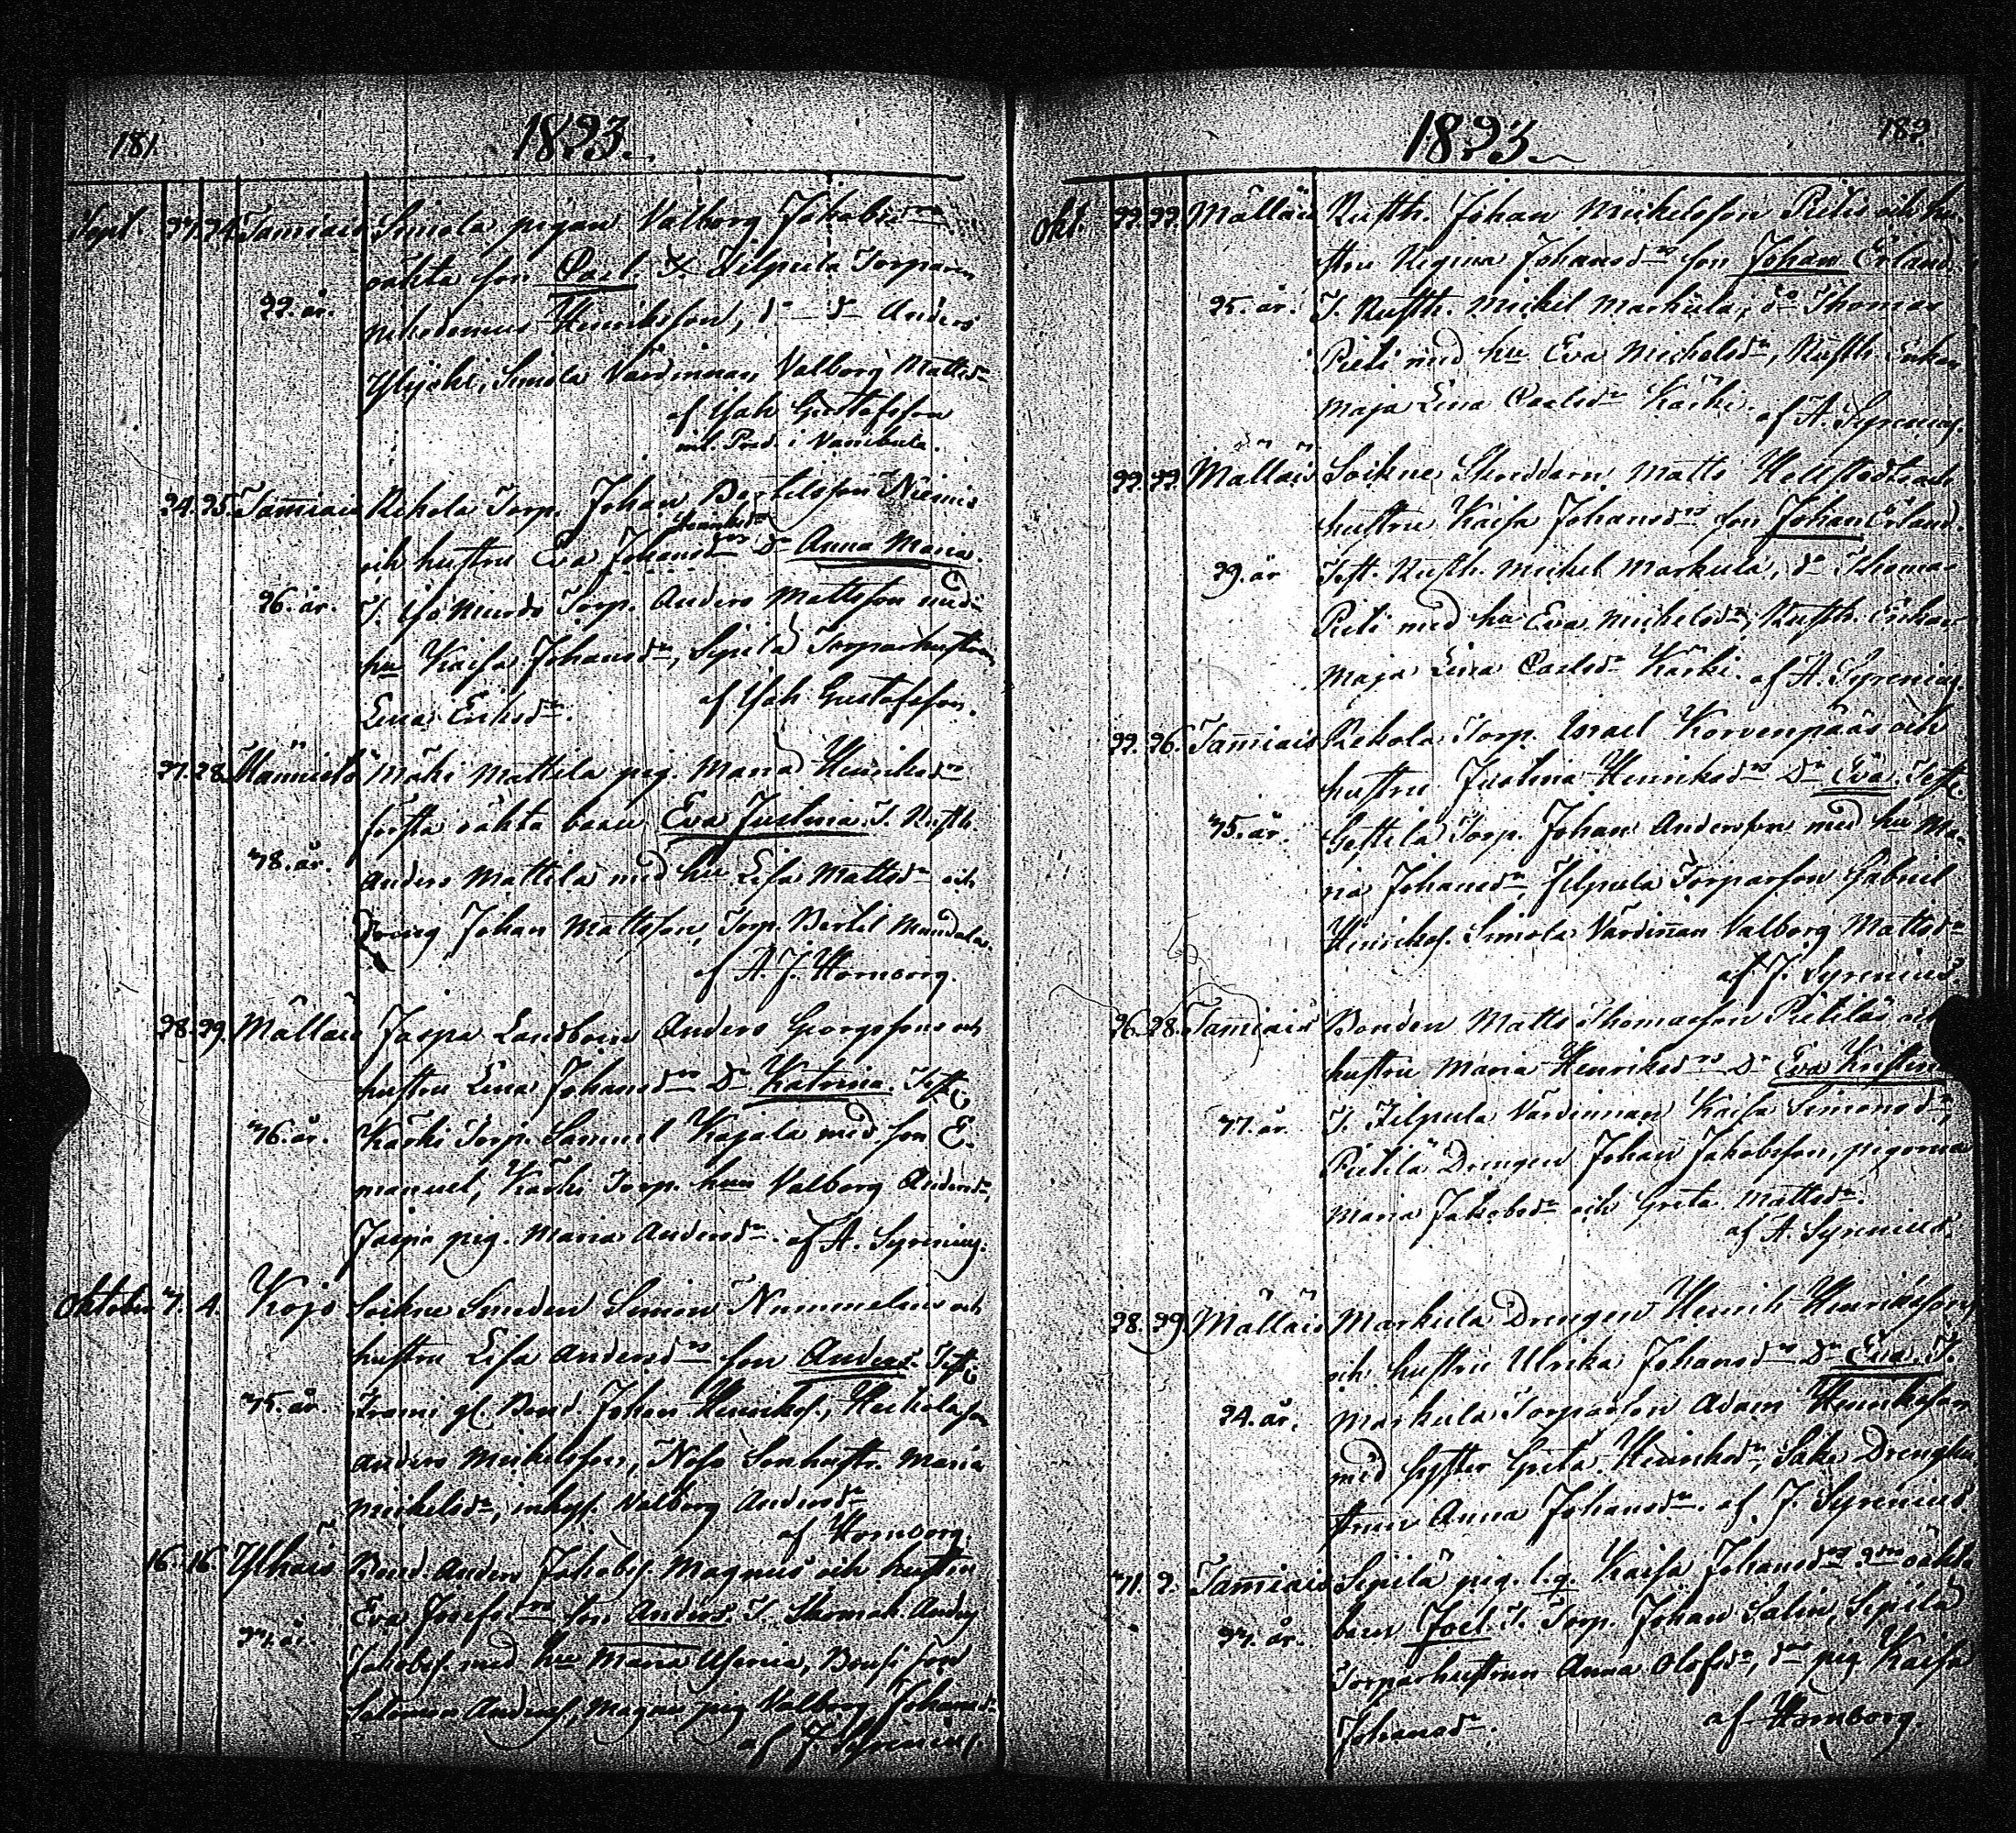 181. 1823.
Sept. 23. 24. Tamiais Simola pigan Valborg Jakobsd:rs
oäkta son Carl. T. Filpula Torparen
22. år. Nikodemus Henriksson, d:o d:o Anders
Ylijoki, Simola Värdinnan, Valborg Mattsd:r
af Isak Gustafsson
24. 25. Tamiais Rekola Torp. Johan Bertilsson Niemis
Henriksd:rs
och hustru Eva Johansd:rs D:r Anna Maria.
26. år. Torp. Anders Mattsson med
hu Kaisa Johansd:r, Sipilä Torparhustrun
Lena Eriksd:r. af Isak Gustafsson.
27. 28. Mannisto Mäki Mattila pig. Maria Henriksd:rs
första oäkta barn Eva Justina. T. Rusth.
38. år. Anders Mattila med hu Lisa Mattsd:r och
Dreng Johan Mattsson, Torp. Bertil Mandola.
af A. J. Hornborg.
28. 29. Mällais Jaspa Landboen Anders Georgssons och
hustru Lena Johansd:rs D:r Katrina. Test.
36. år. Kärki Torp. Samuel Kajala med son E-
manuel, Kärki Torp. hun Valborg Andersd:r,
Jaspa pig. Maria Andersd:r. af A. Syrenius.
Oktober 3. 4. Kojo Sockne Smeden Simon Nummelins och
hustru Lisa Andersd:rs son Anders. Test.
35. år. Frami gl. Bond. Johan Henriks., Heikola son
Anders Michelsson, Sonhustr. Maria
Michelsd:r, inhys. Valborg Andersd:r
af Hornborg.
16. 16. Ylhäis Bond. Anders Jakobs. Magnus och hustru
Eva Josefsd:rs son Anders. T. Skomak. Anders
37. år. Jakobs. med hu Maria Usenia, son
Salomon Anders., Magnus pig Valborg Johansd:r
af J. Syrenius.
1823. 182.
Okt. 22. 22. Mällais Rusth. Johan Michelsson Pietis och hu-
stru Regina Johansd:rs son Johan Erland.
25. år. T. Rusth. Michel Markula, d:o Thomas
Pieti med hu Eva Michelsd:r, Rusth. Enkan
Maja Lena Carlsd:r Kärki. af A. Syrenius.
22. 22. Mällais Sockne Skreddarn Matts Hellstedts och
hustru Kaisa Johansd:rs son Johan Erland.
29. år Test. Rusth. Michel Markula, d:o Thomas
Pieti med hu Eva Michelsd:r, Rusth. Enkan
Maja Lena Carlsd:r Kärki. af A. Syrenius.
22. 26. Tamiais Rekola Torp. Israel Korvenpääs och
hustru Justina Henriksd:rs D:r Eva. Test.
35. år. Torp. Johan Andersson med hu Ma-
ria Johansd:r Filpula Torparson Gabriel
Henriks. Simola Värdinnan Valborg Mattsd:r
af J. Syrenius
26. 28. Tamiais Bonden Matts Thomasson Pietiläs och
hustru Maria Henriksd:rs D:r Eva Kristina
37. år. T. Filpula Värdinnan Kaisa Simonsd:r,
Pietilä Drengen Johan Jakobsson, pigorna
Maria Jakobsd:r och Greta Mattsd:r.
af A. Syrenius.
28. 29. Mällais Markula Drengen Henrik Henrikssons
och hustru Ulrika Johansd:rs D:r Eva. T.
24. år. Markula Torparson Adam Henriksson
med Syster Greta Henriksd:r, Drenghu-
strun Anna Johansd:r. af J. Syrenius
31. 2. Tamiais Sipilä pig. l.q. Kaisa Johansd:rs 2:dra oäkta
33. år. barn Joel. T. Torp. Johan Salin, Sipilä
Torparhustrun Anna Olofsd:r, d:o pig Kaisa
Johansd:r. af Hornborg.